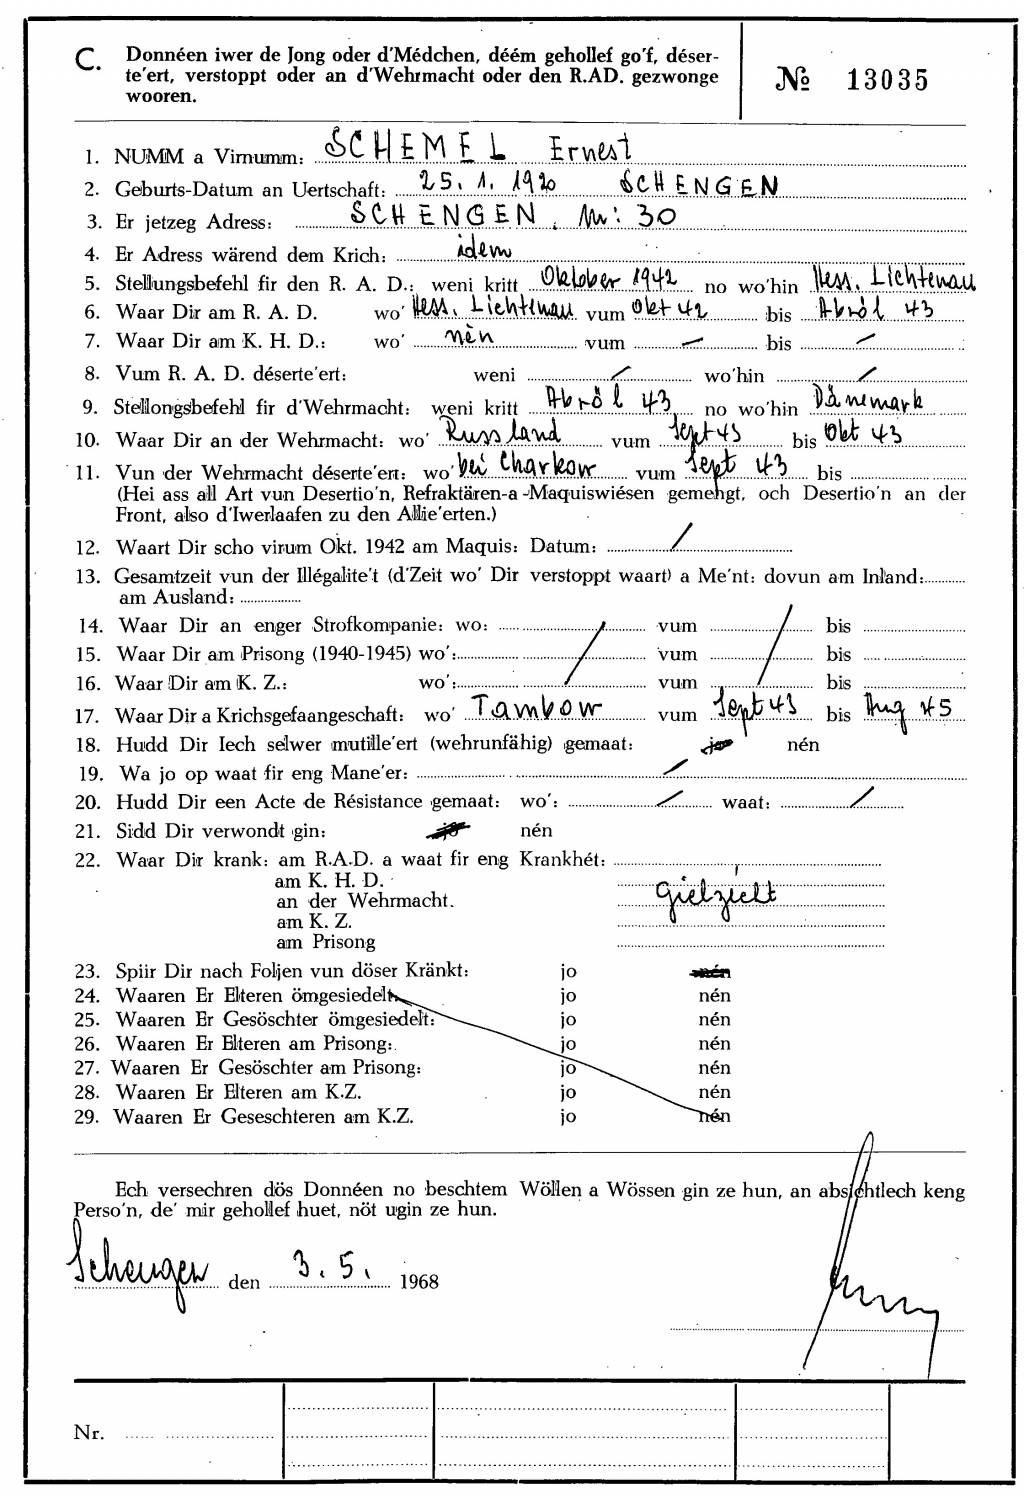 C. Donnéen iwer de Jong oder d'Médchen, déém gehollef go'f, déser-
te'ert, verstoppt oder an d'Wehrmacht oder den R.AD. gezwonge
wooren.
№ 13035
1. NUMM a Virnumm: SCHEMEL Ernest
2. Geburts-Datum an Uertschaft: 25. 1. 1920 SCHENGEN
3. Er jetzeg Adress: SCHENGEN, Nr: 30
4. Er Adress wärend dem Krich: idem
5. Stellungsbefehl fir den R. A. D.: weni kritt Oktober 1942 no wo'hin Hess. Lichtenau
6. Waar Dir am R. A. D. wo' Hess. Lichtenau vum Okt 42 bis Abröl 43
7. Waar Dir am K. H. D.: wo' nèn vum — bis /
8. Vum R. A. D. déserte'ert: weni / wo'hin /
9. Stellongsbefehl fir d'Wehrmacht: weni kritt Abröl 43 no wo'hin Dänemark
10. Waar Dir an der Wehrmacht: wo' Russland vum Sept 43 bis Okt 43
11. Vun der Wehrmacht déserte'ert: wo' bei Charkow vum Sept 43 bis
(Hei ass all Art vun Desertio'n, Refraktären-a -Maquiswiésen gemengt, och Desertio'n an der
Front, also d'Iwerlaafen zu den Allie'erten.)
12. Waart Dir scho virum Okt. 1942 am Maquis: Datum: /
13. Gesamtzeit vun der Illégalite't (d'Zeit wo' Dir verstoppt waart) a Me'nt: dovun am Inland:
am Ausland:
14. Waar Dir an enger Strofkompanie: wo: vum bis
15. Waar Dir am Prisong (1940-1945) wo': vum bis
16. Waar Dir am K. Z.: wo': vum bis
17. Waar Dir a Krichsgefaangeschaft: wo' Tambow vum Sept 43 bis Aug 45
18. Hudd Dir Iech selwer mutille'ert (wehrunfähig) gemaat: jo nén
19. Wa jo op waat fir eng Mane'er: /
20. Hudd Dir een Acte de Résistance gemaat: wo': / waat: /
21. Sidd Dir verwondt gin: jo nén
22. Waar Dir krank: am R.A.D. a waat fir eng Krankhét:
am K. H. D.
an der Wehrmacht. Gielzicht
am K. Z.
am Prisong
23. Spiir Dir nach Foljen vun döser Kränkt: jo nén
24. Waaren Er Elteren ömgesiedelt: jo nén
25. Waaren Er Gesöschter ömgesiedelt: jo nén
26. Waaren Er Elteren am Prisong: jo nén
27. Waaren Er Gesöschter am Prisong: jo nén
28. Waaren Er Elteren am K.Z. jo nén
29. Waaren Er Geseschteren am K.Z. jo nén
Ech versechren dös Donnéen no beschtem Wöllen a Wössen gin ze hun, an absichtlech keng
Perso'n, de' mir gehollef huet, nöt ugin ze hun.
Schengen den 3. 5. 1968
Nr.